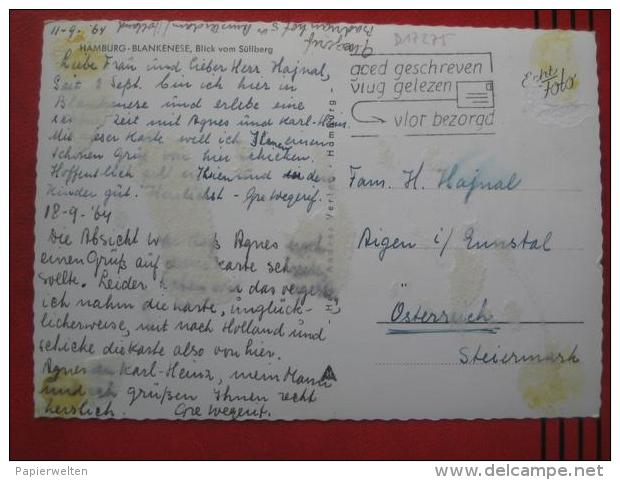 11-9-'64
Badmanhof 5 Amsterdam/Holland
HAMBURG-BLANKENESE, Blick vom Süllberg
D17275
Liebe Frau und lieber Herr Hajnal,
Seit 2 Sept. bin ich hier in
Blankenese und erlebe eine
Zeit mit Agnes und Karl-Heinz.
Mit dieser Karte will ich Ihnen einen
schönen Gruß von hier schicken.
Hoffentlich geht es Ihnen und den
Kindern gut. Herzlichst - Gre Wegerif.
18-9-'64
Die Absicht war daß Agnes noch
einen Gruß auf diese Karte schreiben
sollte. Leider haben wir das vergessen
ich nahm die Karte, unglück-
licherweise, mit nach Holland und
schicke die Karte also von hier.
Agnes und Karl-Heinz, mein Mann
und ich grüßen Ihnen recht
herzlich. Gre Wegerif.
goed geschreven
vlug gelezen
vlot bezorgd
Echt Foto
Fam. H. Hajnal
Aigen i/ Ennstal
Österreich
Steiermark
Papierwelten
delcampe.net